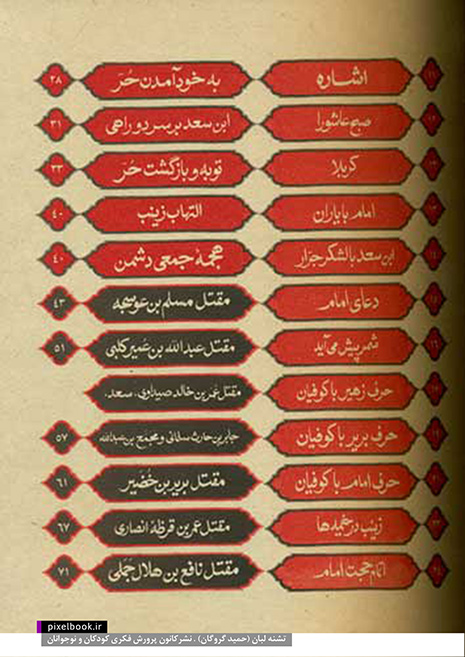 اشاره
صبح عاشورا
کربلا
امام با یاران
ابن سعد با لشکر جرار
دعای امام
شمر پیش می‌آید
حرف زهیر با کوفیان
حرف بریر با کوفیان
حرف امام با کوفیان
زینب در خیمه‌ها
اتمام حجت امام
به خود آمدن حُر ۲۸
ابن سعد بر سر دو راهی ۳۱
توبه و بازگشت حُر ۳۳
التهاب زینب ۴۰
هجمهٔ جمعی دشمن ۴۰
مقتل مسلم بن عوسجه ۴۳
مقتل عبدالله بن عمیر کلبی ۵۱
مقتل عمر بن خالد صیداوی، سعد،
جابر بن حارث سلمانی و مجمع بن عبدالله ۵۷
مقتل بریر بن خُضَیر ۶۱
مقتل عمر بن قرظهٔ انصاری ۶۷
مقتل نافع بن هلال جملی ۷۱
pixelbook.ir
تشنه لبان (حمید گروگان) . نشر کانون پرورش فکری کودکان و نوجوانان